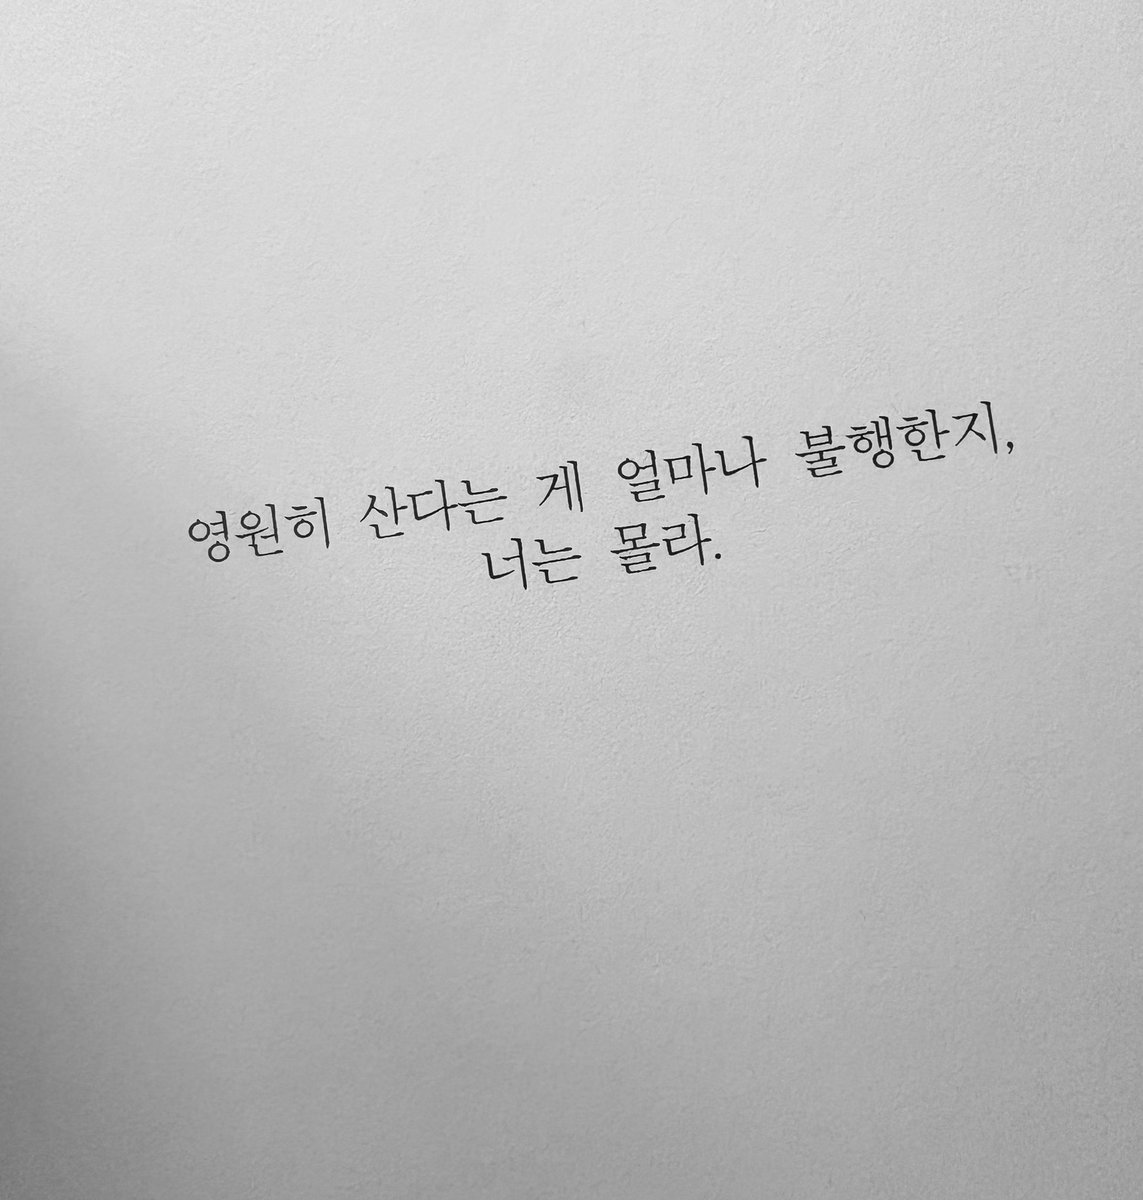 영원히 산다는 게 얼마나 불행한지,
너는 몰라.